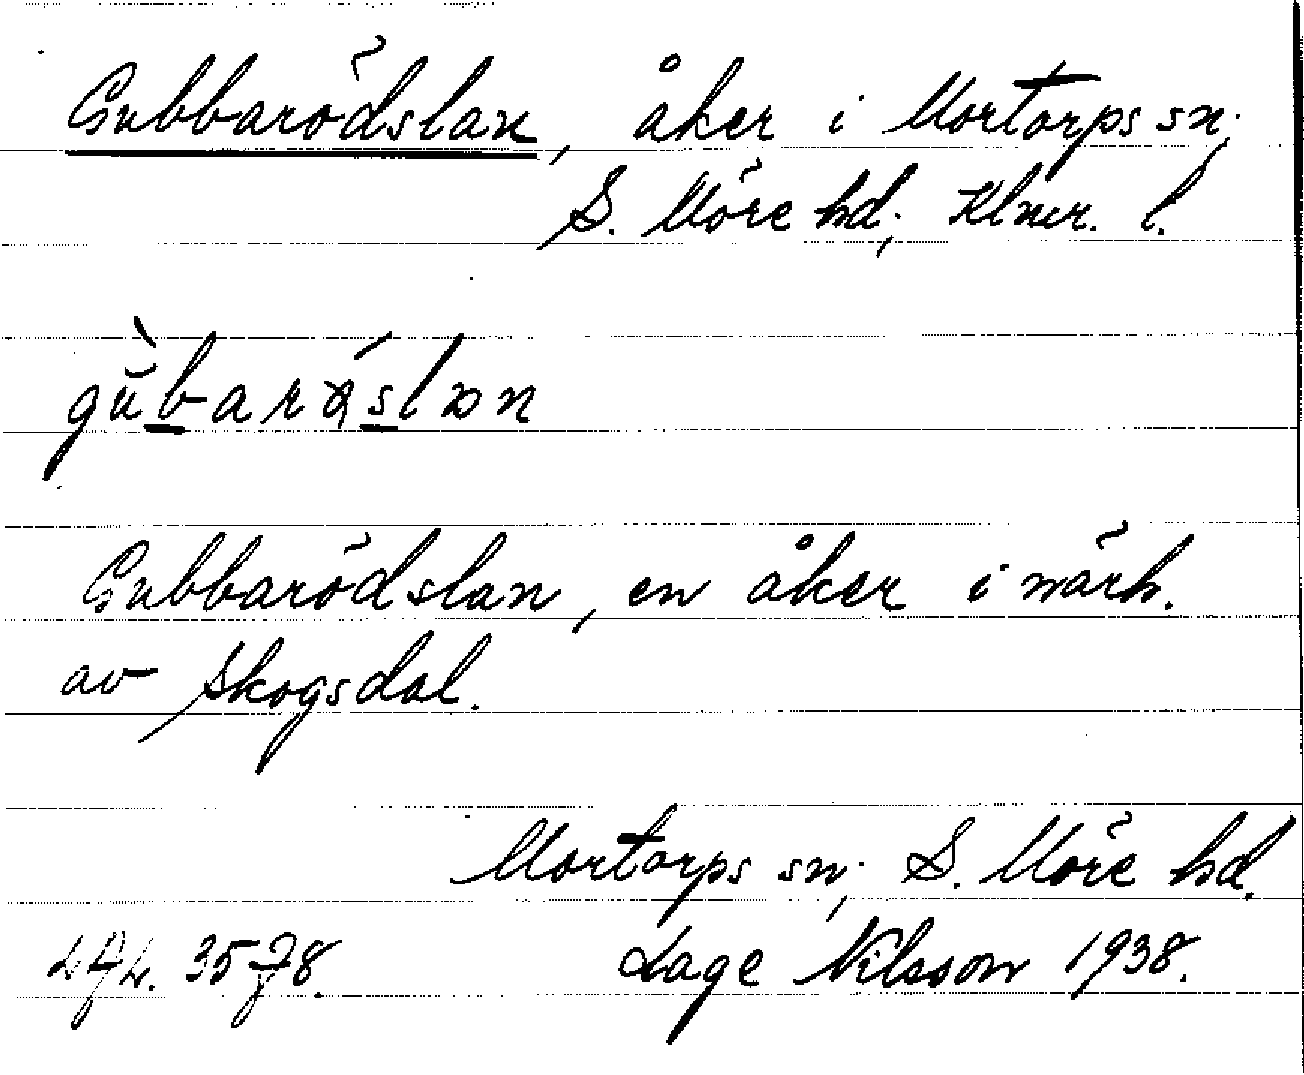 Gubbarödslan, åker i Mortorps sn;
S. Möre hd; Klmr. l.
Gubbarödslan, en åker i närh.
av Skogsdal.
Mortorps sn; S. Möre hd.
3578. Lage Nilsson 1938.